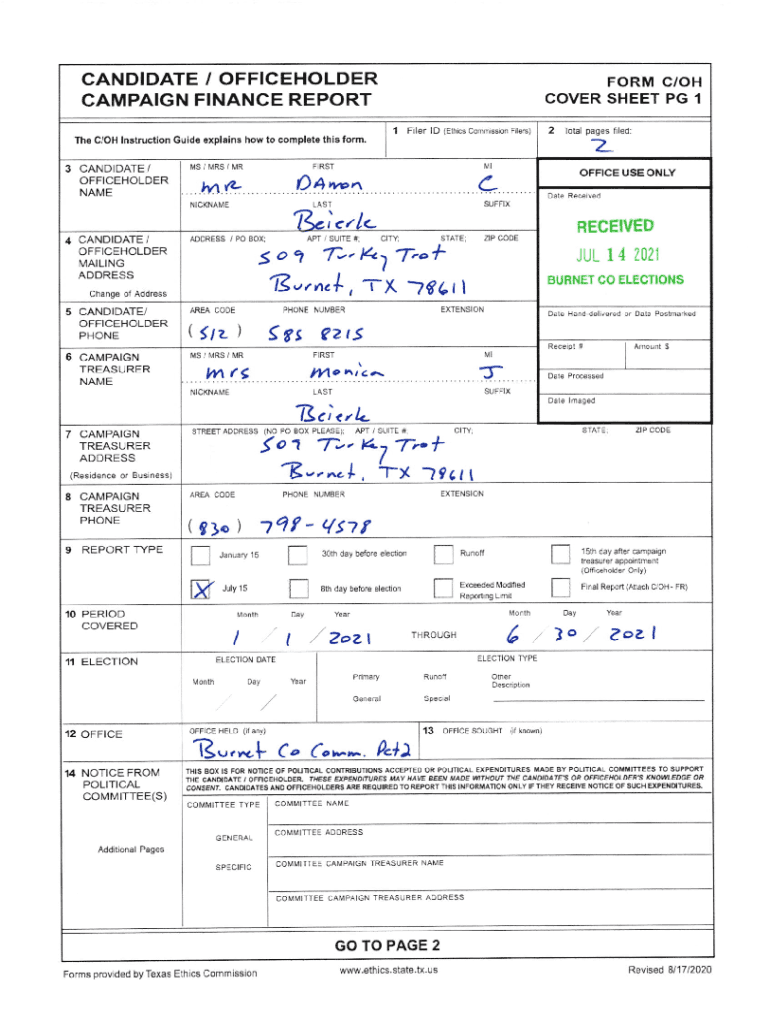 CANDIDATE / OFFICEHOLDER
CAMPAIGN FINANCE REPORT
FORM C/OH
COVER SHEET PG 1
The C/OH Instruction Guide explains how to complete this form.
1 Filer ID (Ethics Commission Filers)
2 Total pages filed:
2
3 CANDIDATE / OFFICEHOLDER NAME
MS / MRS / MR FIRST MI
mr DAmon C
NICKNAME LAST SUFFIX
Beierle
OFFICE USE ONLY
Date Received
RECEIVED
JUL 14 2021
BURNET CO ELECTIONS
4 CANDIDATE / OFFICEHOLDER MAILING ADDRESS
Change of Address
ADDRESS / PO BOX; APT / SUITE #; CITY; STATE; ZIP CODE
509 Turkey Trot
Burnet, TX 78611
5 CANDIDATE/ OFFICEHOLDER PHONE
AREA CODE PHONE NUMBER EXTENSION
(512) 585 8215
Date Hand-delivered or Date Postmarked
Receipt # Amount $
Date Processed
Date Imaged
6 CAMPAIGN TREASURER NAME
MS / MRS / MR FIRST MI
mrs monica J
NICKNAME LAST SUFFIX
Beierle
7 CAMPAIGN TREASURER ADDRESS
(Residence or Business)
STREET ADDRESS (NO PO BOX PLEASE); APT / SUITE #; CITY; STATE; ZIP CODE
509 Turkey Trot
Burnet, TX 78611
8 CAMPAIGN TREASURER PHONE
AREA CODE PHONE NUMBER EXTENSION
(830) 798-4578
9 REPORT TYPE
January 15
30th day before election
Runoff
15th day after campaign treasurer appointment (Officeholder Only)
X July 15
8th day before election
Exceeded Modified Reporting Limit
Final Report (Attach C/OH - FR)
10 PERIOD COVERED
Month Day Year
1 / 1 / 2021
THROUGH
Month Day Year
6 / 30 / 2021
11 ELECTION
ELECTION DATE
Month Day Year
/ /
ELECTION TYPE
Primary Runoff Other Description
General Special
12 OFFICE
OFFICE HELD (if any)
Burnet Co Comm. Pct2
13 OFFICE SOUGHT (if known)
14 NOTICE FROM POLITICAL COMMITTEE(S)
Additional Pages
THIS BOX IS FOR NOTICE OF POLITICAL CONTRIBUTIONS ACCEPTED OR POLITICAL EXPENDITURES MADE BY POLITICAL COMMITTEES TO SUPPORT
THE CANDIDATE / OFFICEHOLDER. THESE EXPENDITURES MAY HAVE BEEN MADE WITHOUT THE CANDIDATE'S OR OFFICEHOLDER'S KNOWLEDGE OR
CONSENT. CANDIDATES AND OFFICEHOLDERS ARE REQUIRED TO REPORT THIS INFORMATION ONLY IF THEY RECEIVE NOTICE OF SUCH EXPENDITURES.
COMMITTEE TYPE
GENERAL
SPECIFIC
COMMITTEE NAME
COMMITTEE ADDRESS
COMMITTEE CAMPAIGN TREASURER NAME
COMMITTEE CAMPAIGN TREASURER ADDRESS
GO TO PAGE 2
Forms provided by Texas Ethics Commission
www.ethics.state.tx.us
Revised 8/17/2020